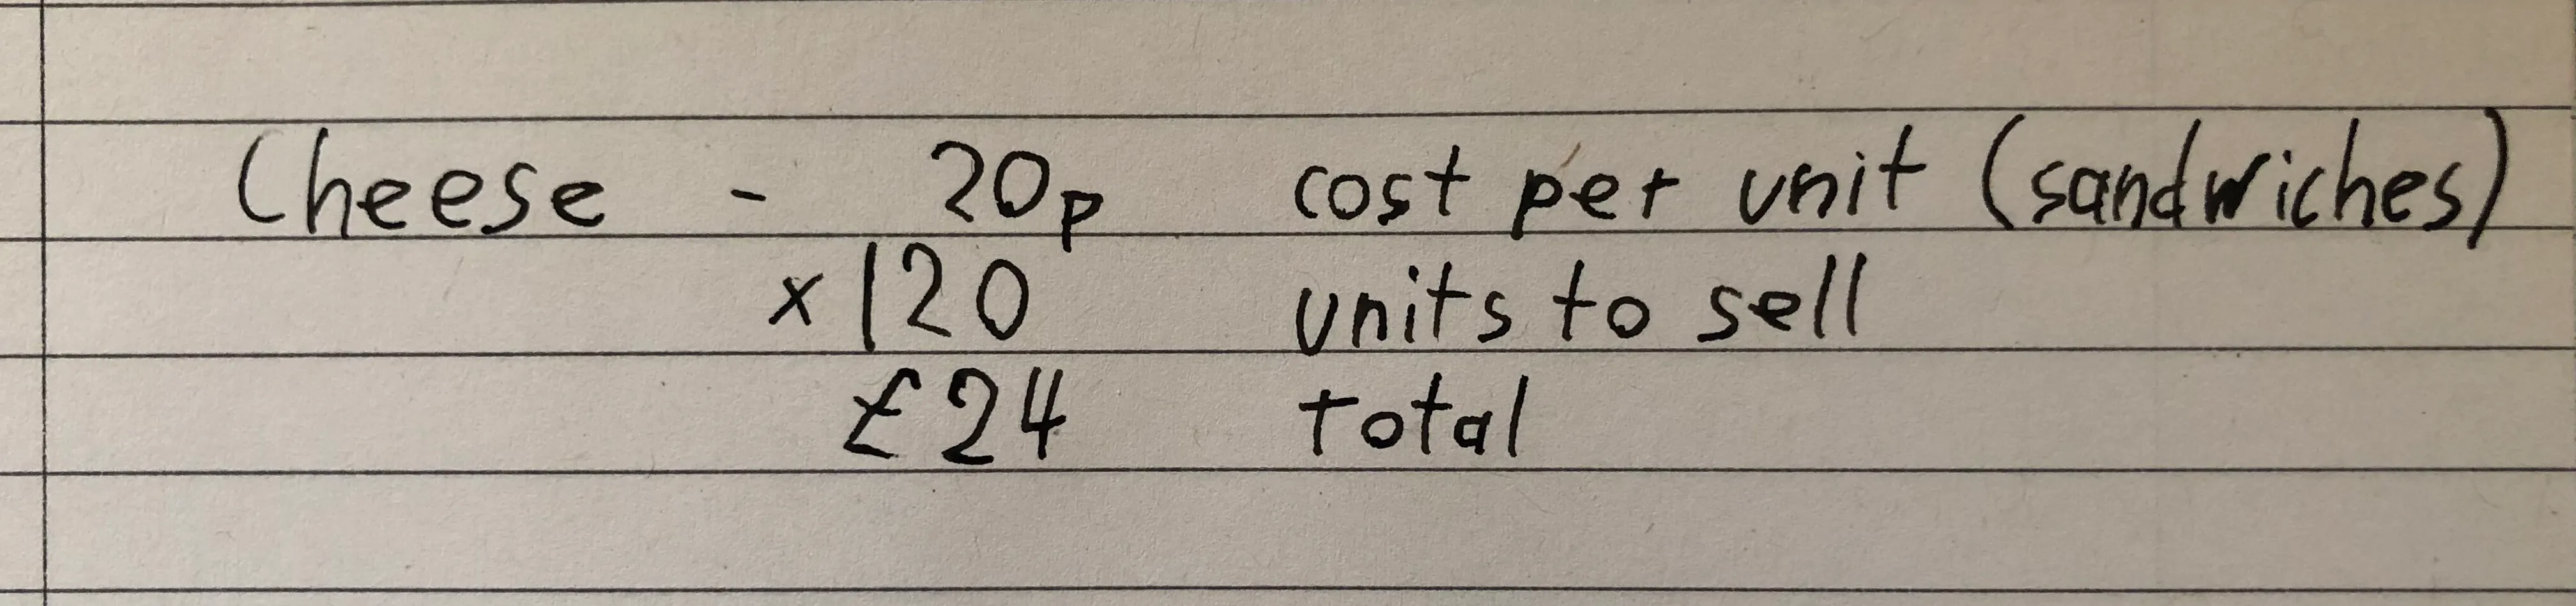 Cheese - 20p cost per unit (sandwiches)
x120 units to sell
£24 total